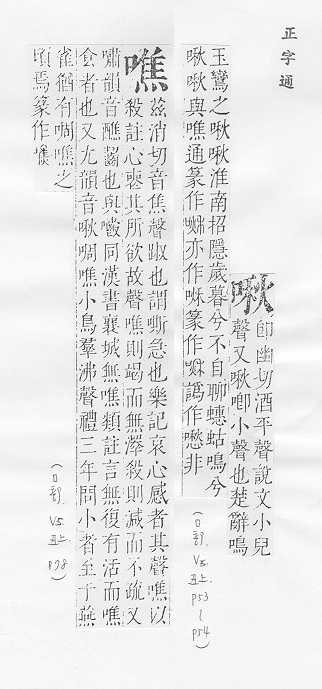 正字通
啾
卽幽切酒平聲說文小兒
聲又啾喞小聲也楚辭鳴
玉鸞之啾啾淮南招隱歲暮兮不自聊蟪蛄鳴兮
啾啾與噍通篆作
亦作
篆作
譌作
非
(口部. V5. 丑上. p53~p54)
噍
茲消切音焦聲踧也謂嘶急也樂記哀心感者其聲噍以
殺註心喪其所欲故聲噍則竭而無澤殺則減而不疏又
嘯韻音醮齧也與嚼同漢書襄城無噍類註言無復有活而噍
食者也又尤韻音啾啁噍小鳥羣沸聲禮三年問小者至于燕
雀猶有啁噍之
頃焉篆作
(口部. V5. 丑上. p78)